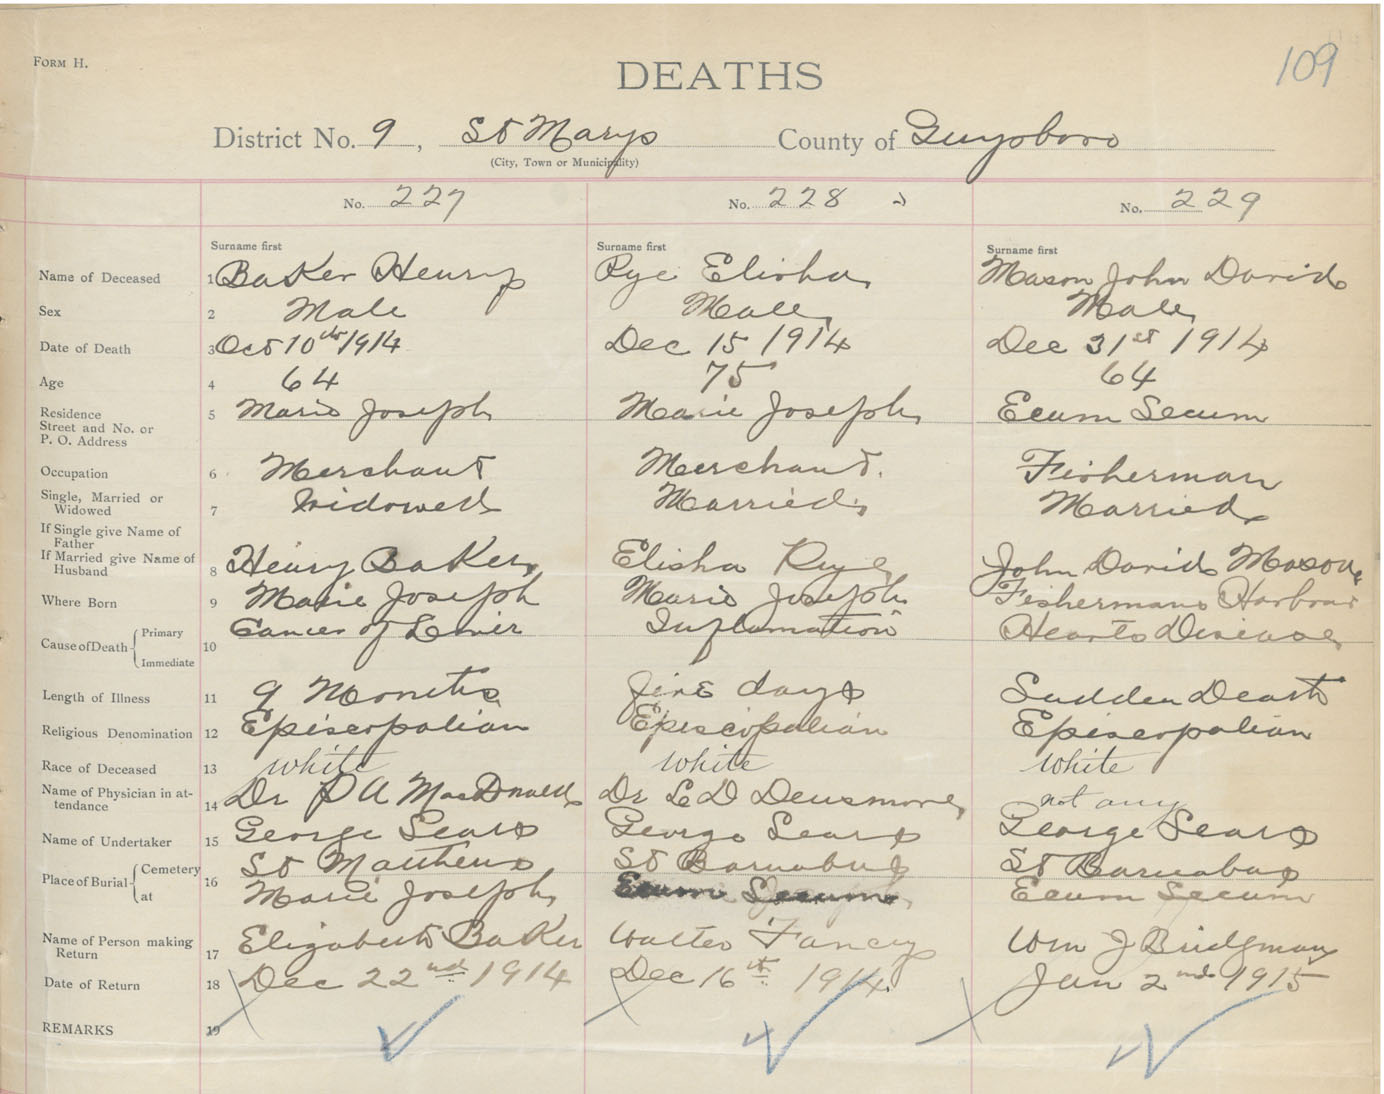 FORM H.
109
DEATHS
District No. 9, St Marys County of Guysboro
(City, Town or Municipality)
No. 227 No. 228 No. 229
Surname first Surname first Surname first
Name of Deceased 1 Baker Henry Pye Elisha Mason John David
Sex 2 Male Male Male
Date of Death 3 Oct 10th 1914 Dec 15 1914 Dec 31st 1914
Age 4 64 75 64
Residence 5 Marie Joseph Marie Joseph Ecum Secum
Street and No. or
P. O. Address
Occupation 6 Merchant Merchant. Fisherman
Single, Married or
Widowed 7 Widowed Married Married
If Single give Name of
Father
If Married give Name of
Husband 8 Henry Baker Elisha Pye John David Mason
Where Born 9 Marie Joseph Marie Joseph Fishermans Harbour
Cause of Death Primary Cancer of Liver Inflamation Hearts Disease
10
Immediate
Length of Illness 11 9 Months five days Sudden Death
Religious Denomination 12 Episcopalian Episcopalian Episcopalian
Race of Deceased 13 white white white
Name of Physician in at-
tendance 14 Dr P A MacDonald Dr L D Densmore not any
Name of Undertaker 15 George Sears George Sears George Sears
Place of Burial Cemetery 16 St Matthews St Barnabus St Barnabas
at Marie Joseph Ecum Secum Ecum Secum
Name of Person making
Return 17 Elizabeth Baker Walter Fancy Wm J Bridgman
Date of Return 18 Dec 22nd 1914 Dec 16th 1914. Jan 2nd 1915
REMARKS 19